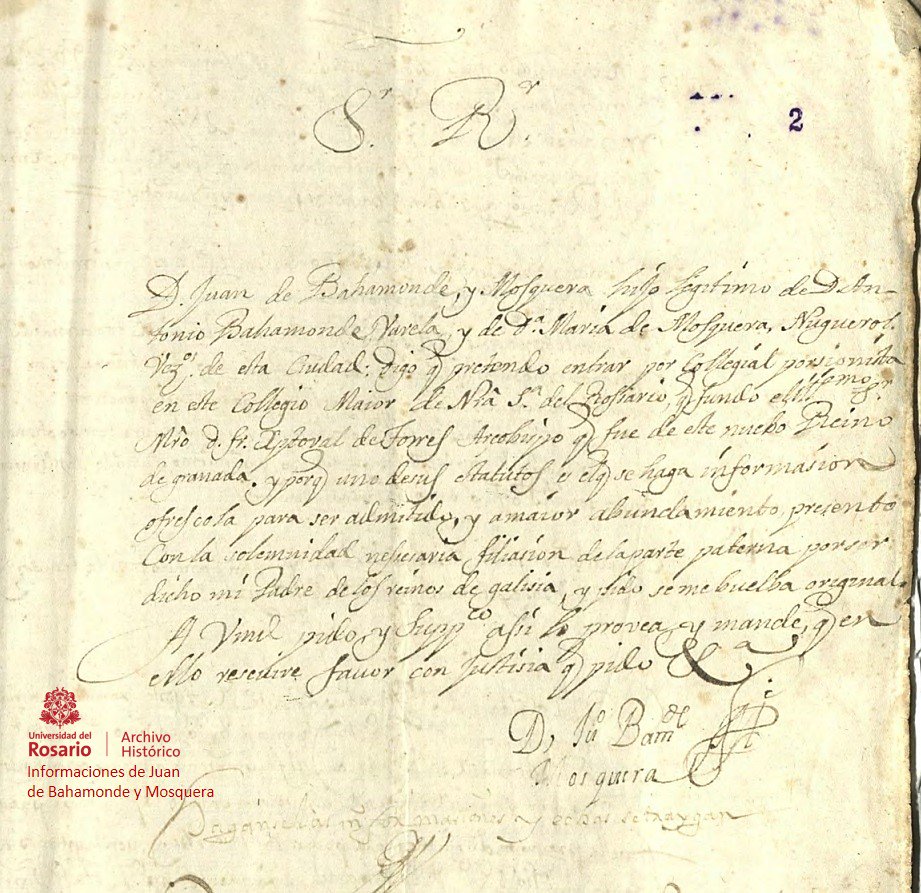 S.r R.r
2
D. Juan de Bahamonde, y Mosquera hijo legitimo de D. An-
tonio Bahamonde Varela, y de Da. Maria de Mosquera, Nuguerol.
Vezos. de esta Ciudad. digo q pretendo entrar por Collegial porsionista
en este Collegio Maior de Nra Sa. del Rossario, q fundo el Illmo. Sr.
Mro D. fr. Xptoval de Torres Arcobispo q fue de este nuebo Reino
de granada. y porq uno de sus estatutos es el q se haga informasion
ofrescola para ser admitido, y amaior abundamiento, presento
Con la solemnidad nesesaria filiasion de la parte paterna por ser
dicho mi Padre de los reinos de galisia, y pido se me buelba original.
A Vmd pido, y suppco asi lo provea, y mande, q en
ello resevire favor con Justisia q pido &a
D, Juo Bamde
Mosquera
Hagánse las informasiones y echas se traygan
Universidad del
Rosario
Archivo
Histórico
Informaciones de Juan
de Bahamonde y Mosquera